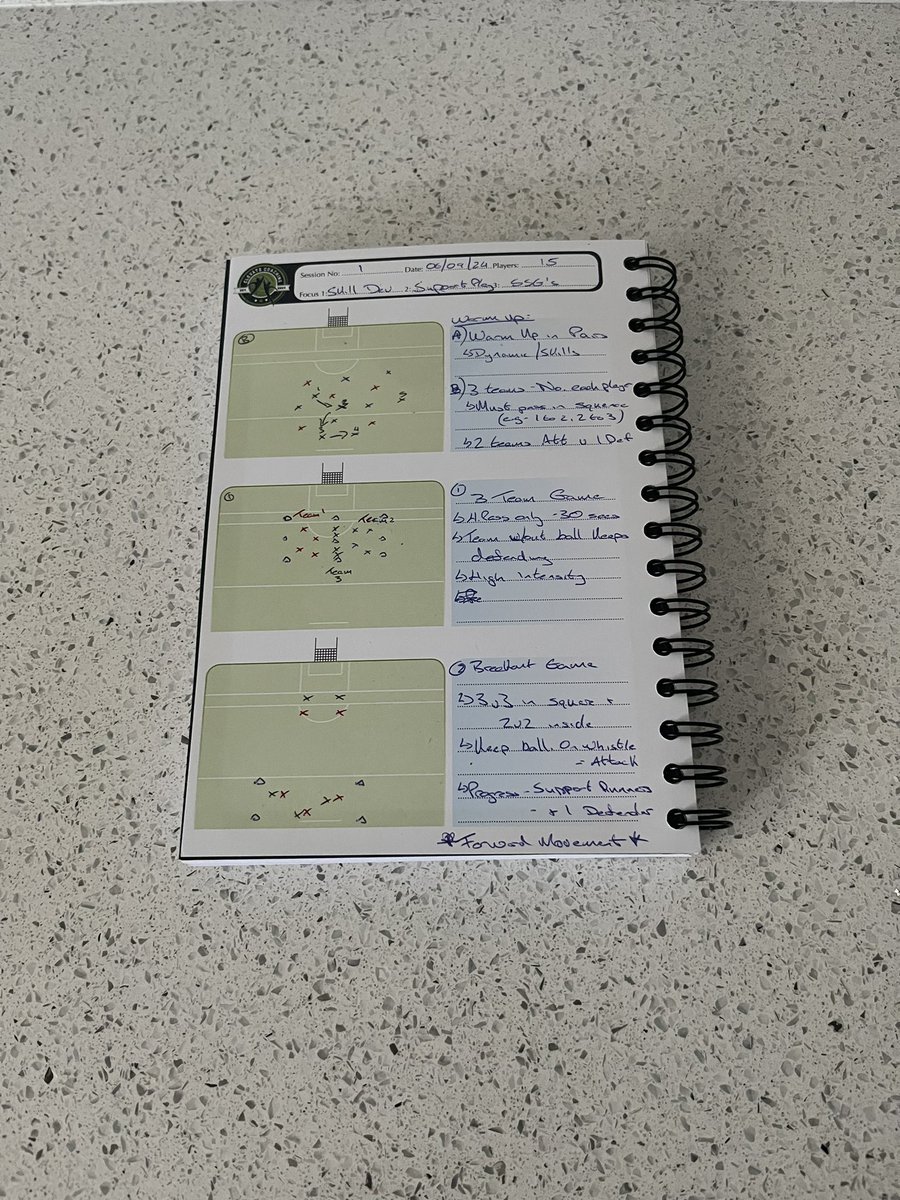 ELEVATE COACHING
Session No: 1 Date: 06/09/24 Players: 15
Focus 1: Skill Dev 2: Support Play 3: SSG's
Warm Up:-
A) Warm Up in Pairs
↳ Dynamic / Skills
B) 3 teams - No. each player
↳ Must pass in Squence
(eg - 1 to 2, 2 to 3)
↳ 2 teams Att v 1 Def
B
① 3 Team Game
↳ H/Pass only - 30 secs
↳ Team w/out ball keeps
defending
↳ High Intensity
①
Team 1
Team 2
Team
3
② Breakout Game
↳ 3v3 in square +
2v2 inside
↳ Keep ball. On whistle
= Attack
↳ Progress - Support Runners
- + 1 Defender
* Forward Movement *